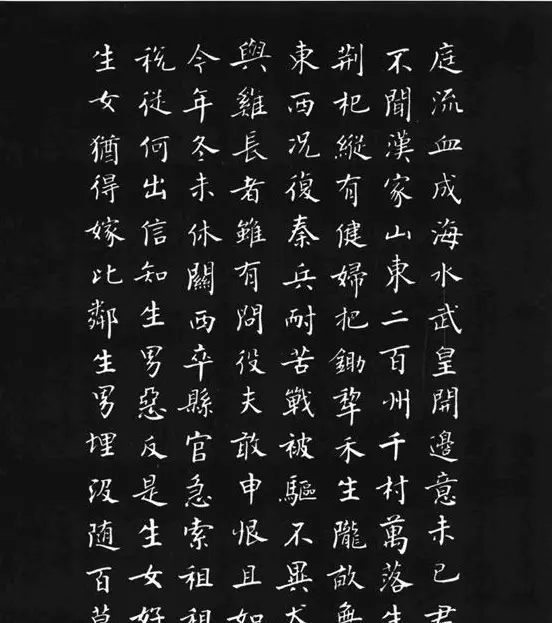 庭流血成海水武皇開邊意未已君
不聞漢家山東二百州千村萬落生
荆杞縱有健婦把鋤犂禾生隴畝無
東西況復秦兵耐苦戰被驅不異犬
與雞長者雖有問役夫敢申恨且如
今年冬未休關西卒縣官急索租租
税從何出信知生男惡反是生女好
生女猶得嫁比鄰生男埋沒随百草